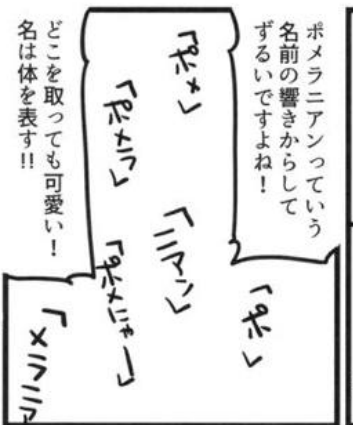 ポメラニアンっていう
名前の響きからして
ずるいですよね！
「ポメ」
「ポメラ」
「ニアン」
「ポメにゃー」
「ポ」
「メラニア
どこを取っても可愛い！
名は体を表す!!